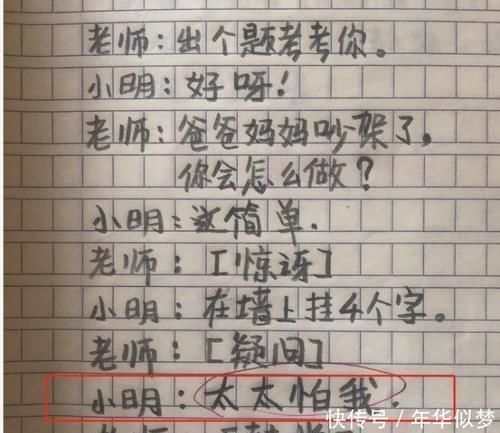 老师：出个题考考你。
小明：好呀！
老师：爸爸妈妈吵架了，
你会怎么做？
小明：这简单．
老师：［惊讶］
小明：在墙上挂4个字。
老师：［疑问］
小明：太太怕我．
快传号／年华似梦